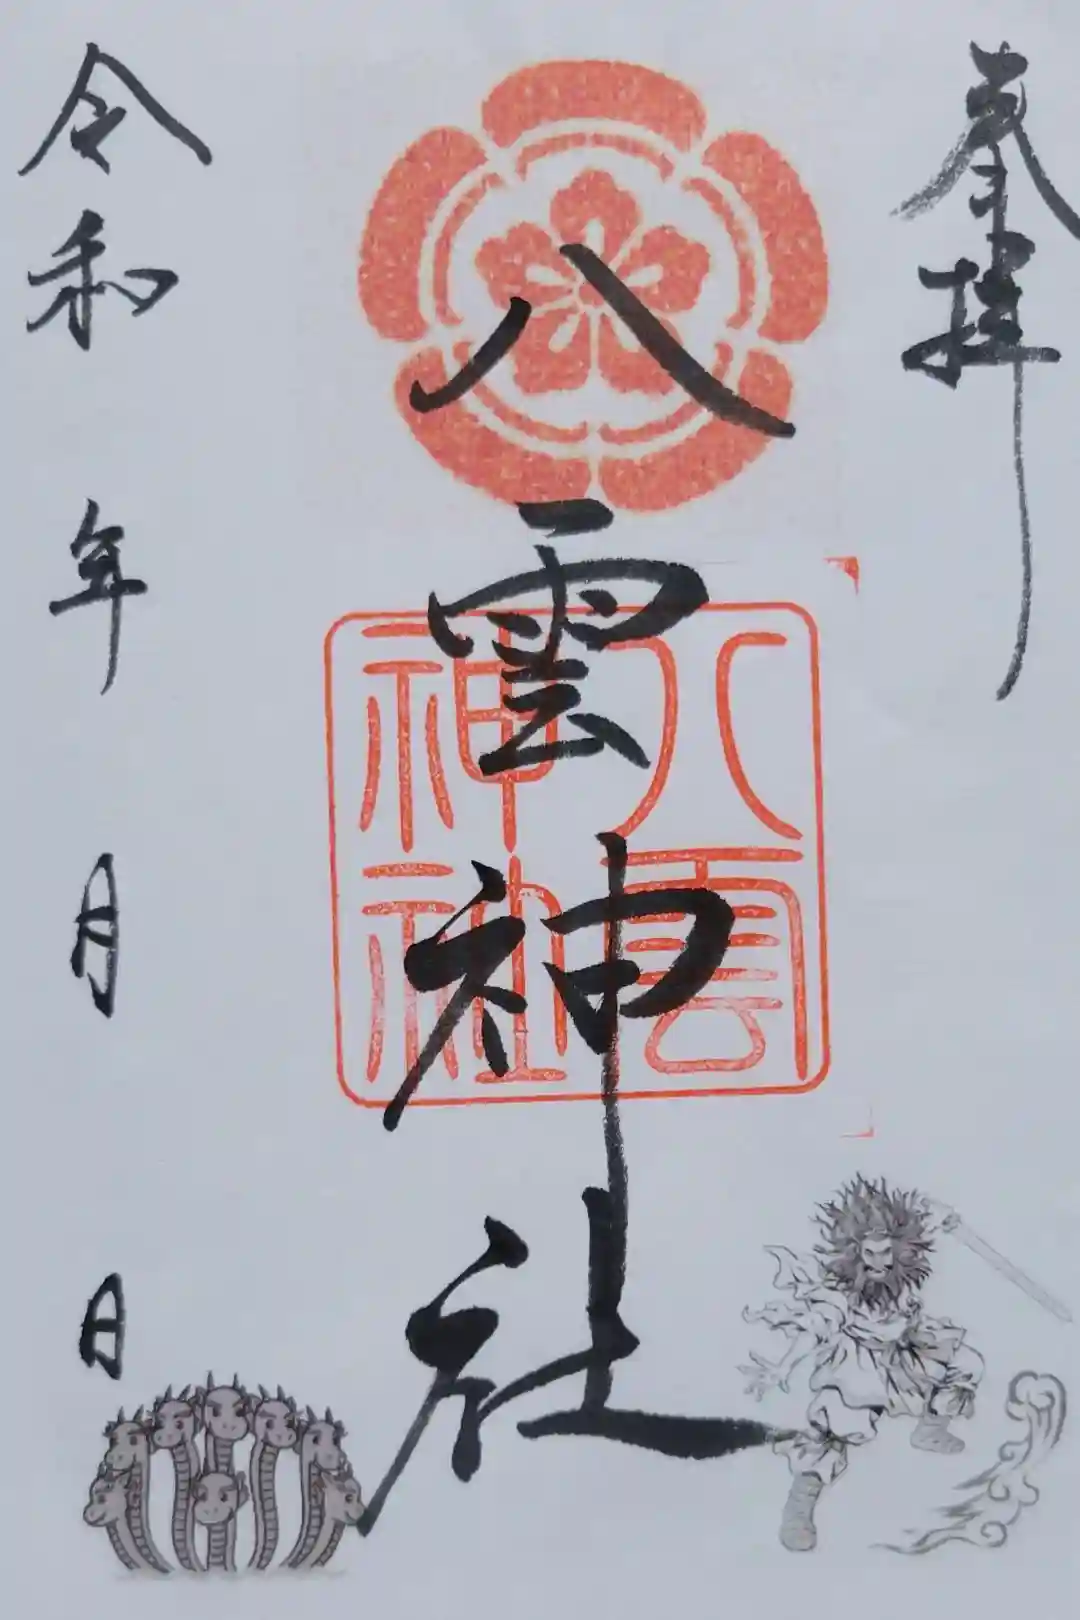 奉拝
八雲神社
八雲
神社
令和 年 月 日